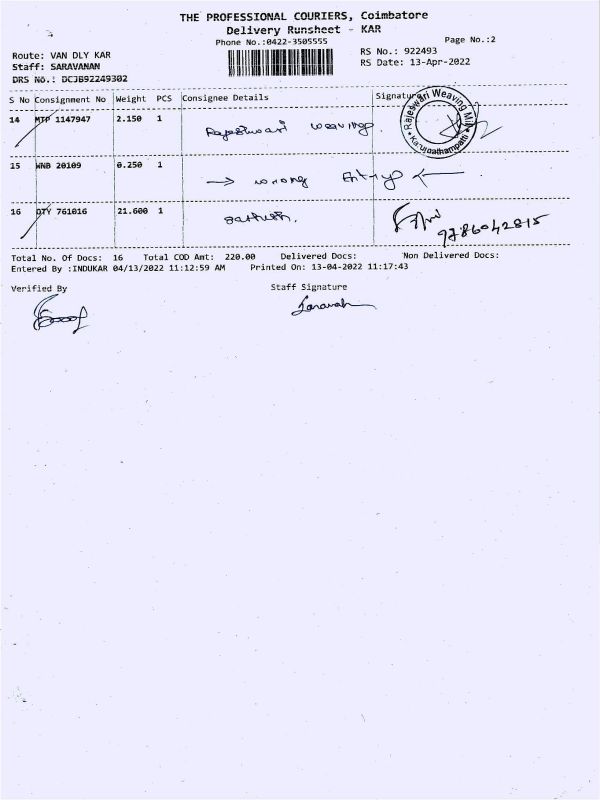 THE PROFESSIONAL COURIERS, Coimbatore
Delivery Runsheet - KAR
Phone No.:0422-3505555
Page No.:2
Route: VAN DLY KAR
RS No.: 922493
Staff: SARAVANAN
RS Date: 13-Apr-2022
DRS No.: DCJB92249302
S No Consignment No Weight PCS Consignee Details Signature
14 MTP 1147947 2.150 1 Rajeshwari weaving
Rajeswari Weaving Mill
Karumathampatti
15 WNB 20109 0.250 1
→ wrong Entry ←
16 QTY 761016 21.600 1 Sathish.
9786042815
Total No. Of Docs: 16 Total COD Amt: 220.00 Delivered Docs: Non Delivered Docs:
Entered By :INDUKAR 04/13/2022 11:12:59 AM Printed On: 13-04-2022 11:17:43
Verified By Staff Signature
Saravan